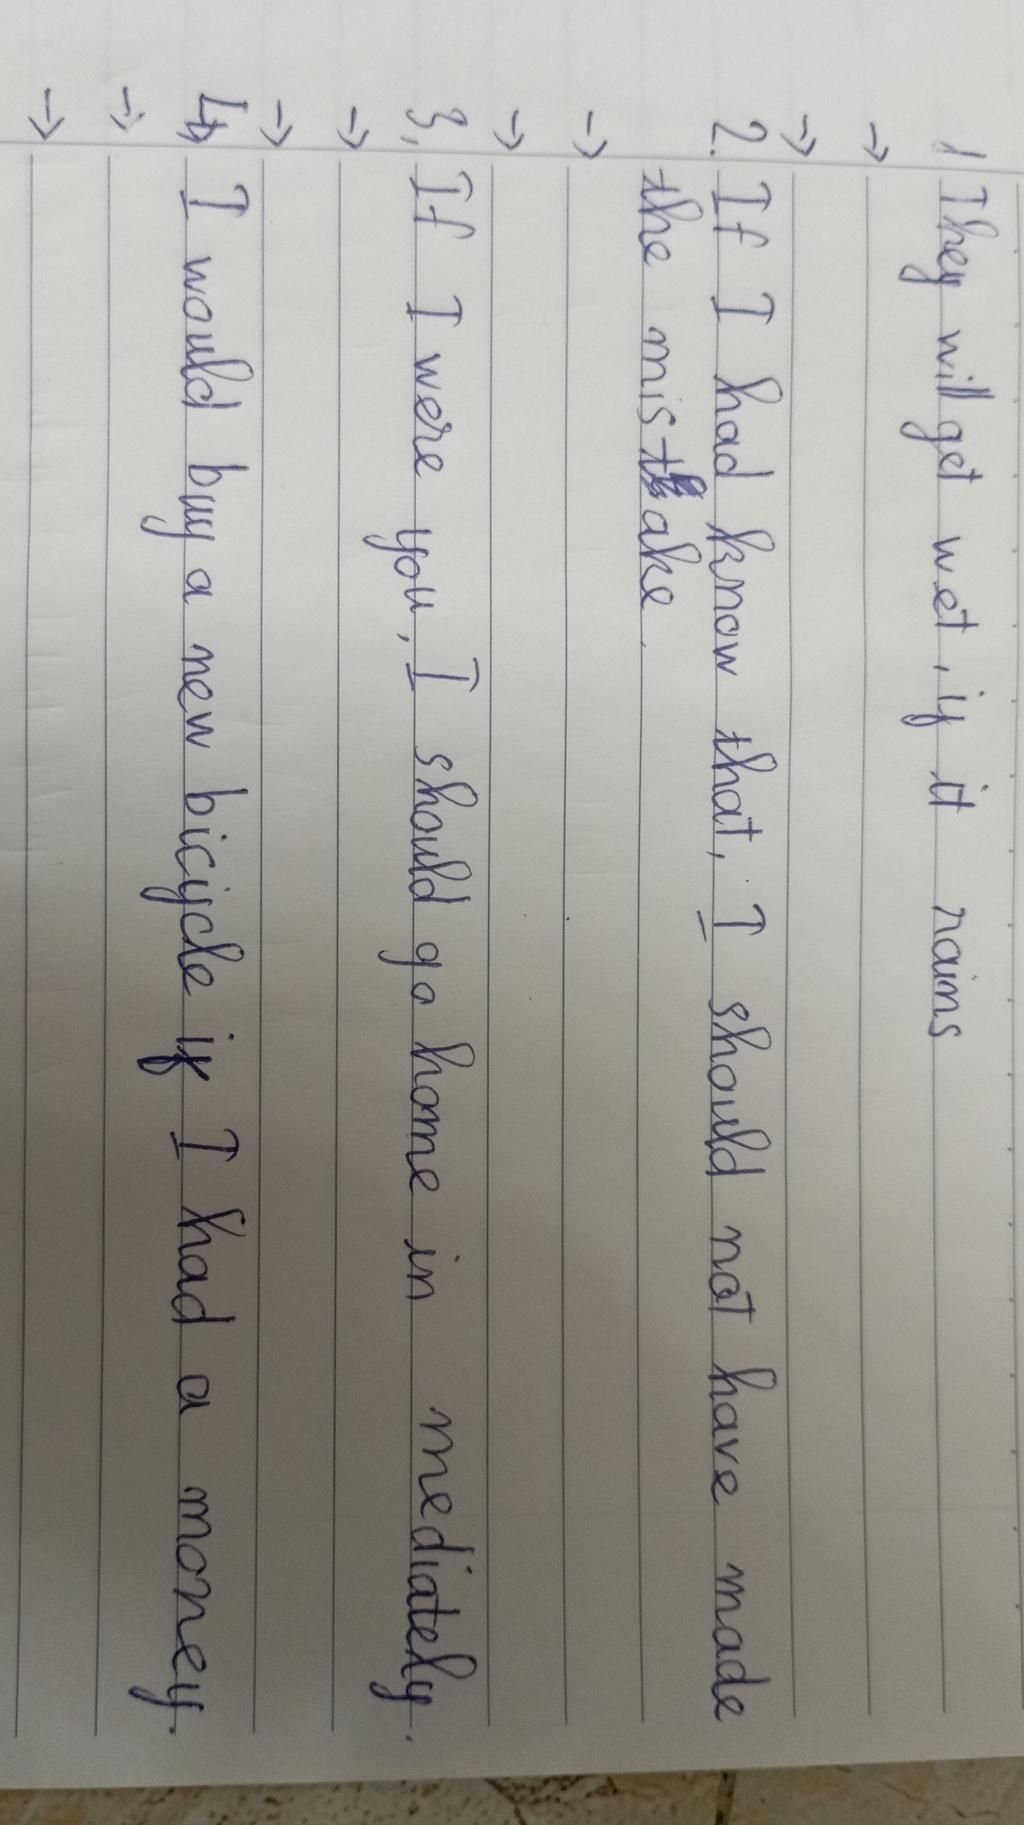 1 They will get wet, if it rains
→
→
2. If I had know that, I should not have made
the mistake.
→
→
3. If I were you, I should go home in mediately.
→
→
4. I would buy a new bicycle if I had a money.
→
→